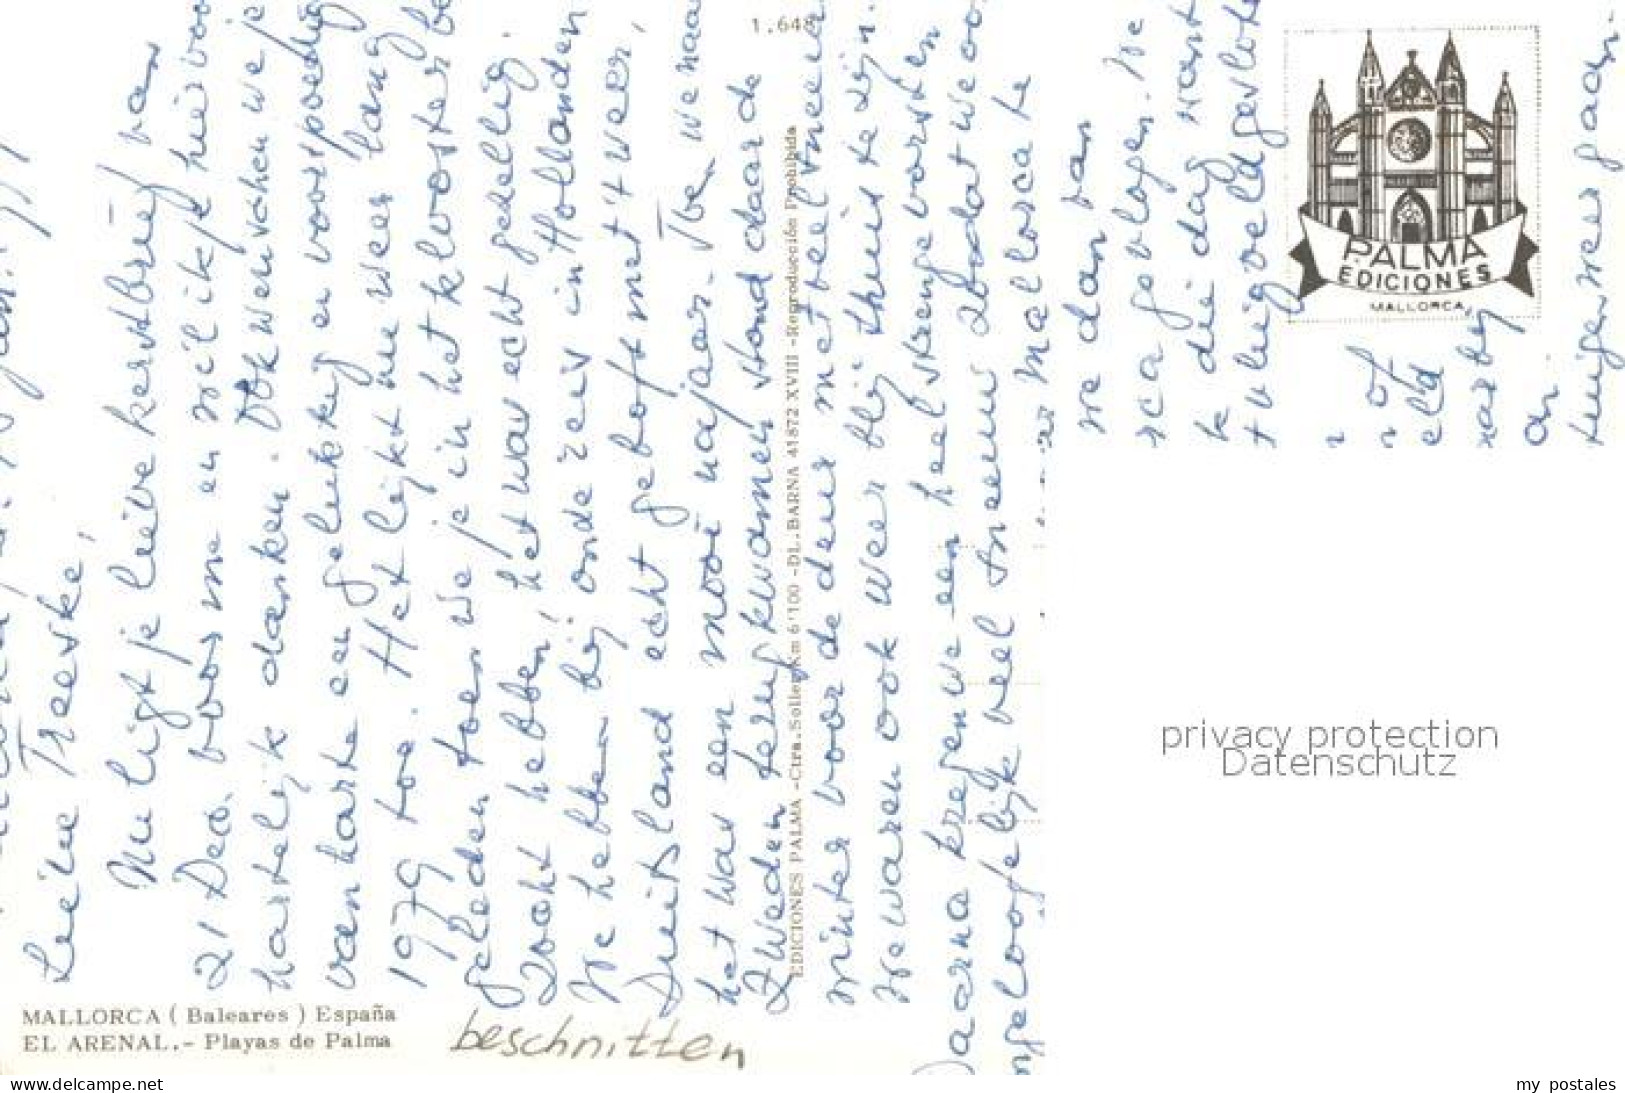 Lieve Treeske,
Nu ligt je lieve kerstbrief van
21 Dec. voor me en wil ik je hiervoor
hartelijk danken. Ook wensen we je
van harte een gelukkig en voorspoedig
1979 toe. Het lijkt nu weer lang
geleden toen we je in het klooster be
zocht hebben, het was echt gezellig.
We hebben bij onze reis in Hollanden
Duitsland echt geboft met 't weer,
het was een mooi najaar. Toen we naar
Zweden terugkwamen stond daar de
winter voor de deur met veel sneeuw
We waren ook weer blij thuis te zijn.
Daarna kregen we een heel strenge vorst en
ongelooflijk veel sneeuw zodat we oo
Mallorca te
we dan van
rca gevlogen. We
k die dag want
t vliegveld gesloten
of
eld
an
kunnen gaan.
1.648
EDICIONES PALMA -Ctra. Soller Km 6'100 -DL. BARNA 41872 XVIII -Reproducción Prohibida
PALMA
EDICIONES
MALLORCA
MALLORCA ( Baleares ) España
EL ARENAL.- Playas de Palma
beschnitten
privacy protection
Datenschutz
www.delcampe.net
my postales